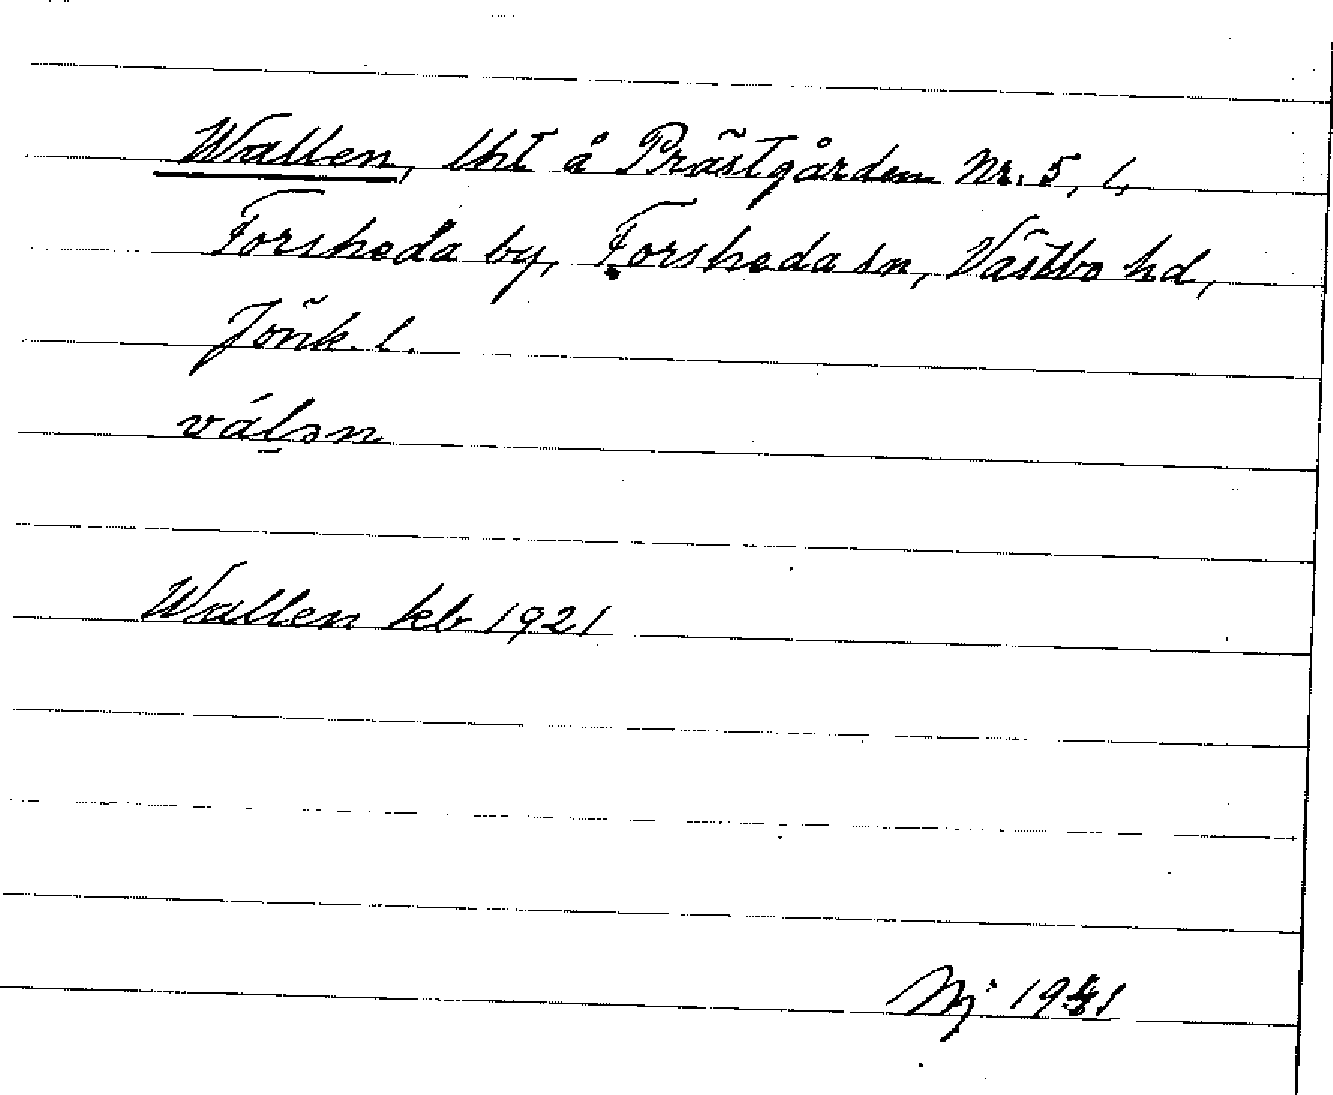 Wallen, lht å Prästgården Nr. 5, i,
Forsheda by, Forsheda sn, Västbo hd,
Jönk. l.
válən
Wallen kb 1921
1941